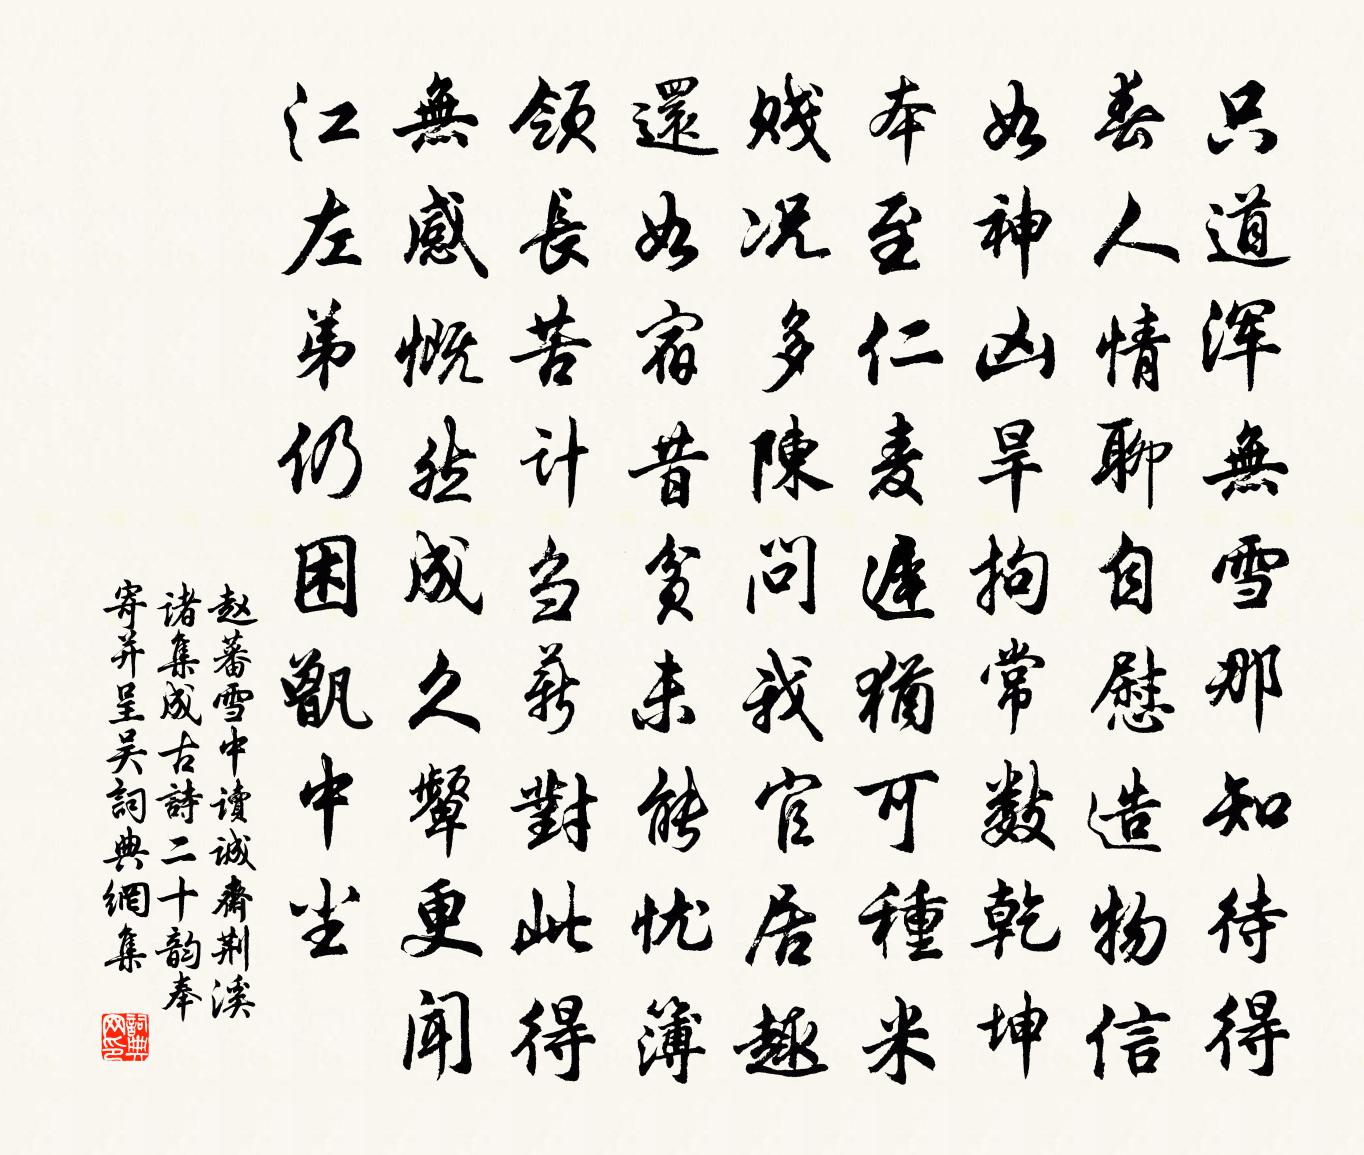 只道浑無雪那知待得
春人情聊自慰造物信
如神凶旱拘常數乾坤
本至仁麦遲猶可種米
贱况多陳問我官居趣
還如宿昔貧未能忧簿
領長苦計刍薪對此得
無感慨然成久顰更闻
江左弟仍困甑中尘
赵蕃雪中读诚齋荆溪
诸集成古詩二十韵奉
寄并呈吴詞典網集
詞典网印